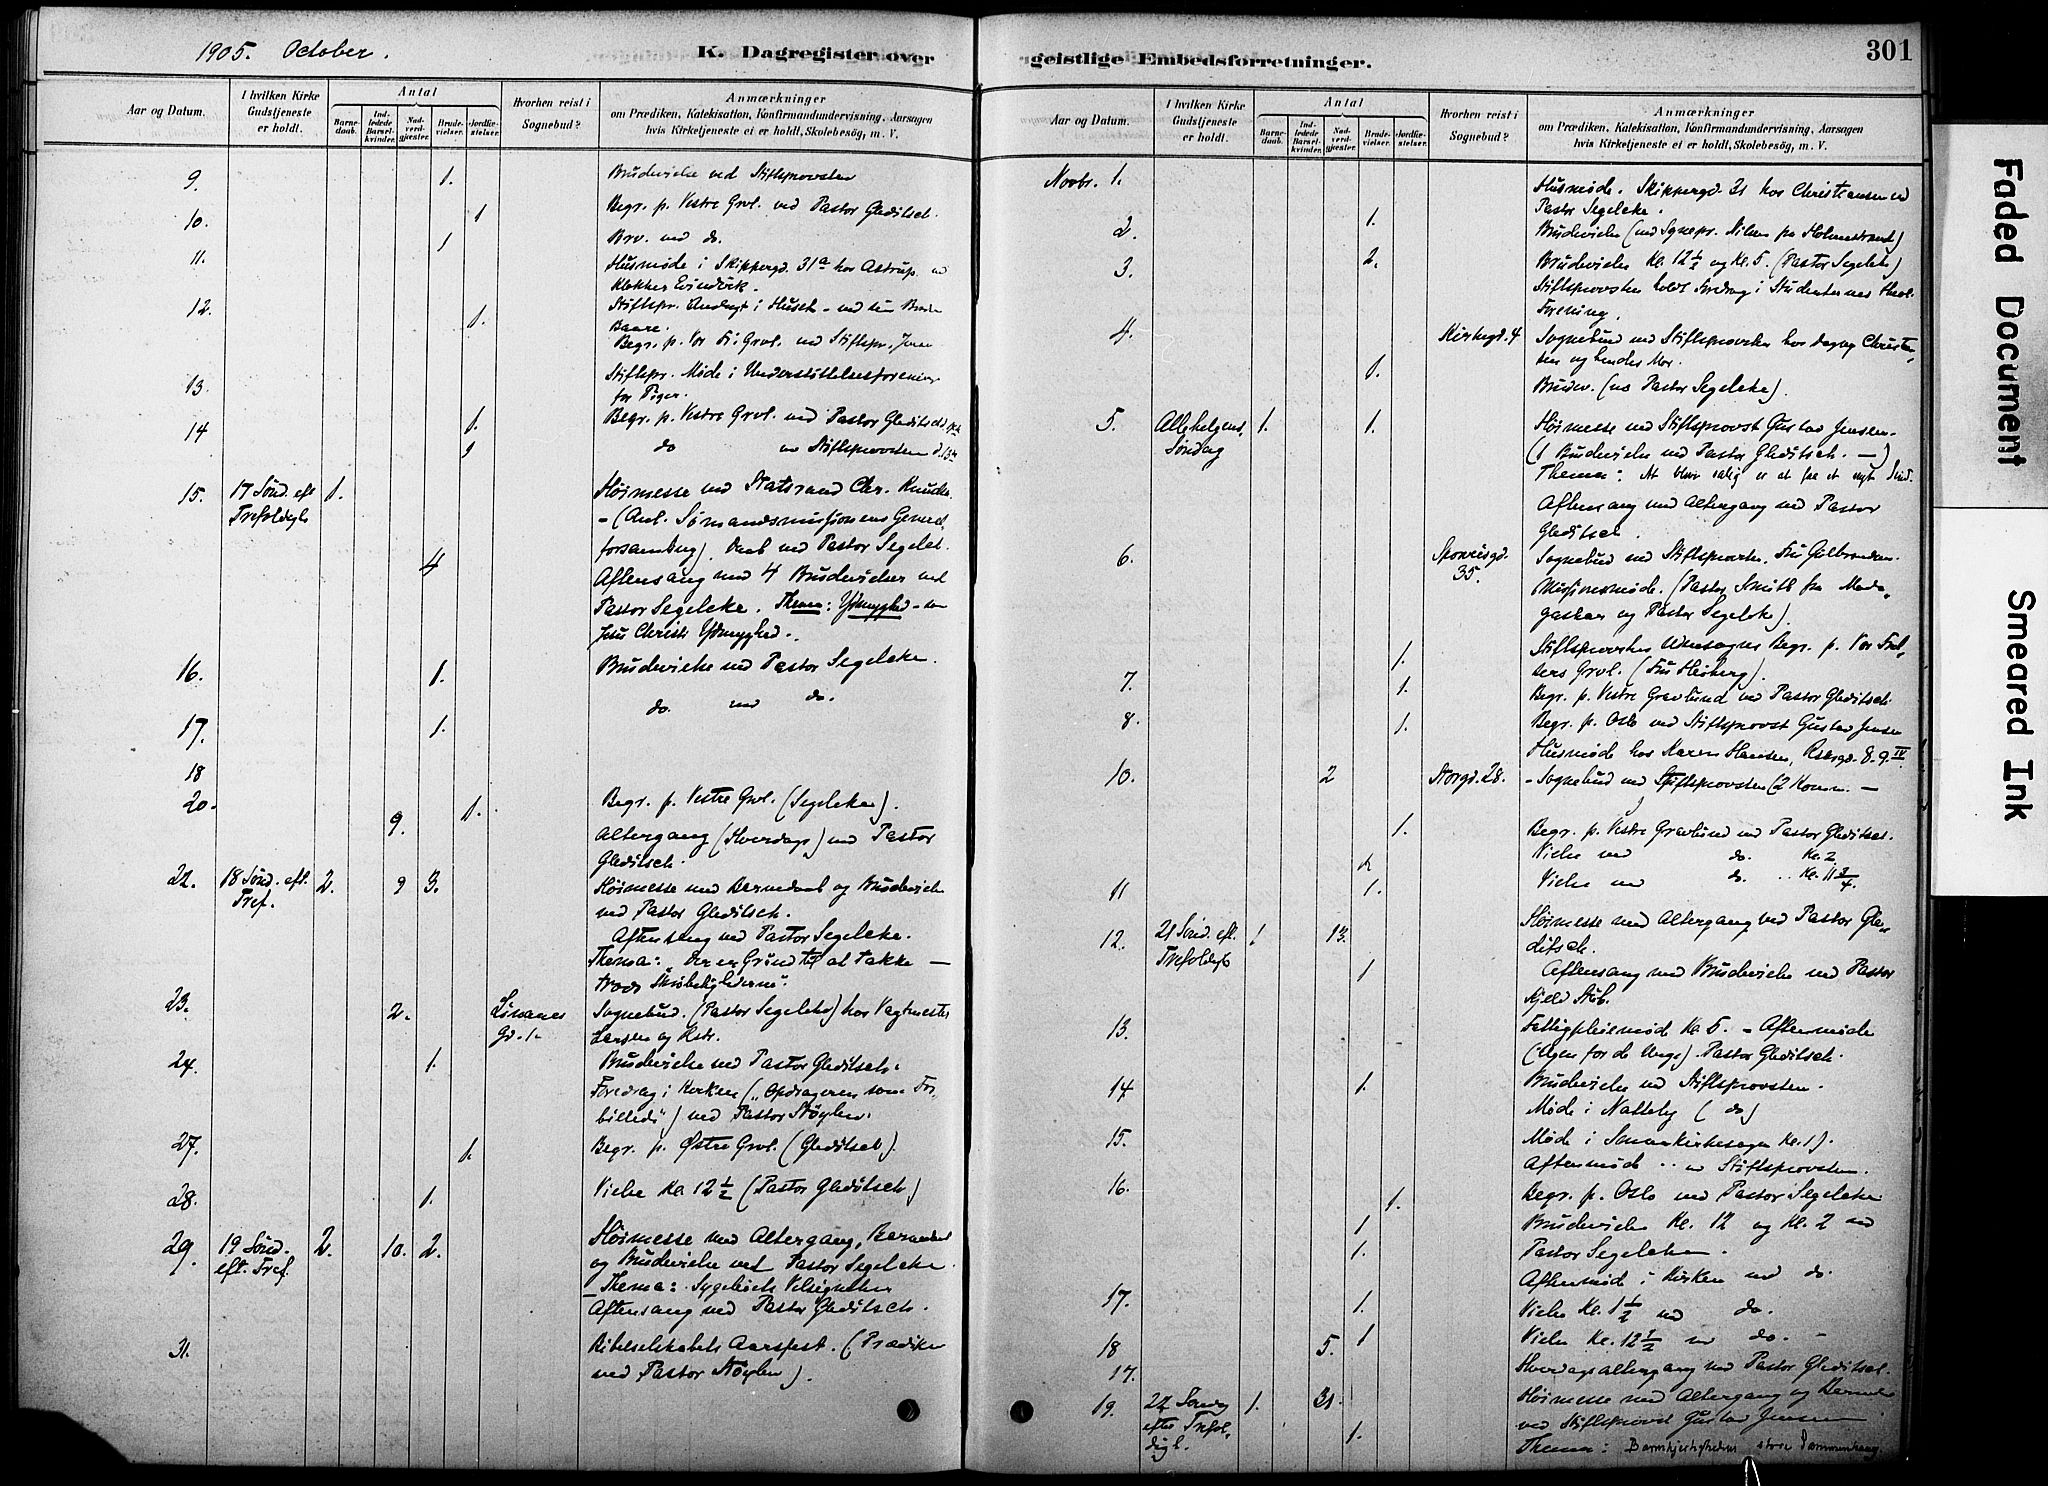 1905. October.
K. Dagregister over
geistlige Embedsforretninger.
301
Aar og Datum.
I hvilken Kirke Gudstjeneste er holdt.
Antal
Barnedaab.
Indledede Barselkvinder.
Nadverdgjæster.
Brudevielser.
Jordfæstelser.
Hvorhen reist i Sognebud?
Anmærkninger
om Prædiken, Katekisation, Konfirmandundervisning, Aarsagen
hvis Kirketjeneste ei er holdt, Skolebesög, m. V.
9. 1. Brudevielse ved Stiftsprovsten
10. 1 Begr. p. Vestre Grvl. ved Pastor Gleditsch.
1 Brv. ved do.
11. Husmøde i Skippergd. 31a hos Astrup. ved
Klokker
12. Stiftspr. Andagt i Huset - ved
1. Baare.
Begr. p. Vor Fr. Grvl. ved Stiftspr. Jensen
13. Stiftspr. Møde i Understøttelsesforening
for Piger.
14 1. Begr. p. Vestre Grvl. ved Pastor Gleditsch
1 do ved Stiftsprovsten d. 13de
15. 17 Sønd. eft. 1. Høimesse ved Statsraad Chr. Knudsen
Trefoldigh - (Anl. Sømandsmissionens General
forsamling). Daab ved Pastor Segelcke.
4 Aftensang med 4 Brudevielser ved
Pastor Segelcke. Thema: Ydmyghed - som
Jesu Christi Ydmyghed.
16. 1. Brudevielse ved Pastor Segelcke.
17. 1. do. ved do.
18
20. 1. Begr. p. Vestre Grvl. (Segelcke).
9. Altergang (Hverdags) ved Pastor
Gleditsch.
22. 18 Sønd. eft. 2. 9 3. Høimesse med Barnedaab og Brudevielse
Tref. ved Pastor Gleditsch.
Aftensang ved Pastor Segelcke.
Thema: Der er Grund til at takke —
trods Skrøbelighederne.
23. 2. Sognebud. (Pastor Segelcke) hos Vagtmester
Gd. 1. Larsen og Hstr.
24. 1. Brudevielse ved Pastor Gleditsch.
Foredrag i Kirken („Opdrageren som For
billede") ved Pastor Støylen.
27. 1. Begr. p. Østre Grvl. (Gleditsch).
28. 1. Vielse Kl. 12 ½ (Pastor Gleditsch)
29. 19 Sønd. 2. 10. 2. Høimesse med Altergang, Barnedaab
eft. Tref. og Brudevielse ved Pastor Segelcke.
- Thema: Sygeleiets Velsignelser
Aftensang ved Pastor Gleditsch.
31. Bibelselskabets Aarsfest. (Prædiken
ved Pastor Støylen).
Aar og Datum.
I hvilken Kirke Gudstjeneste er holdt.
Antal
Barnedaab.
Indledede Barselkvinder.
Nadverdgjæster.
Brudevielser.
Jordfæstelser.
Hvorhen reist i Sognebud?
Anmærkninger
om Prædiken, Katekisation, Konfirmandundervisning, Aarsagen
hvis Kirketjeneste ei er holdt, Skolebesög, m. V.
Novbr. 1. Husmøde. Skippergd. 31 hos Christiansen ved
Pastor Segelcke.
2. 1. Brudevielse (ved Sognepr. Nilsen fra Holmestrand)
3. 2. Brudevielse Kl. 12 ½ og Kl. 5. (Pastor Segelcke)
Stiftsprovsten holdt Foredrag i Studenternes theol.
Forening.
4. Kirkegd. 4 Sognebud ved Stiftsprovsten hos
og hendes Mor.
1. Brudev. (ved Pastor Segelcke).
5. Allehelgens 1. 1. Høimesse ved Stiftsprovst Gustav Jensen -
Søndag (1 Brudevielse ved Pastor Gleditsch. —)
Thema: At blive salig er at faa et nyt Sind.
Aftensang med Altergang ved Pastor
Gleditsch.
6. 35. Sognebud ved Stiftsprovsten. Fru Gulbrandsen.
Missionsmøde. (Pastor Smith fra Mada,
gaskar og Pastor Segelcke).
1. Stiftsprovsten Begr. p. Vor Frel,
sers Grvl. (Fru Heiberg).
7. 1. Begr. p. Vestre Gravlund ved Pastor Gleditsch
8. 1. Begr. p. Oslo ved Stiftsprovst Gustav Jensen
Husmøde hos Karen Hansen, 8. 9 IV.
10. 2 Storgd. 28. - Sognebud ved Stiftsprovsten (2 Komm. —
1. Begr. p. Vestre Gravlund ved Pastor Gleditsch.
2 Vielse ved do. Kl. 2
11 1. Vielse ved do. .. Kl. 11 ¾.
12. 21 Sønd. eft. 1 13. Høimesse med Altergang ved Pastor Gle,
Trefoldigh ditsch.
1 Aftensang med Brudevielse ved Pastor
Kjeld Stub.
13. Fattigpleiemøde Kl. 5. - Aftenmøde
(Ogsaa for de Unge). Pastor Gleditsch.
14 1. Brudevielse ved Stiftsprovsten.
Møde i Natteby (do)
15. Møde i Kl. 1).
Aftenmøde .. ved Stiftsprovsten.
16. 1. Begr. p. Oslo ved Pastor Segelcke.
1 Brudevielse Kl. 12 og Kl. 2 ved
1. Pastor Segelcke.
Aftenmøde i Kirken ved do.
17. 1. Vielse Kl. 1 ½ ved do.
18 5. 1 Vielse Kl. 12 ½ ved do. -
17. Hverdagsaltergang ved Pastor Gleditsch.
19. 22 Sønd 1. 31 Høimesse med Altergang og Barned
efter Trefol, ved Stiftsprovst Gustav Jensen
digh. 1. Thema: Barmhjertighedens store Sammenhæng.
Faded Document
Smeared Ink